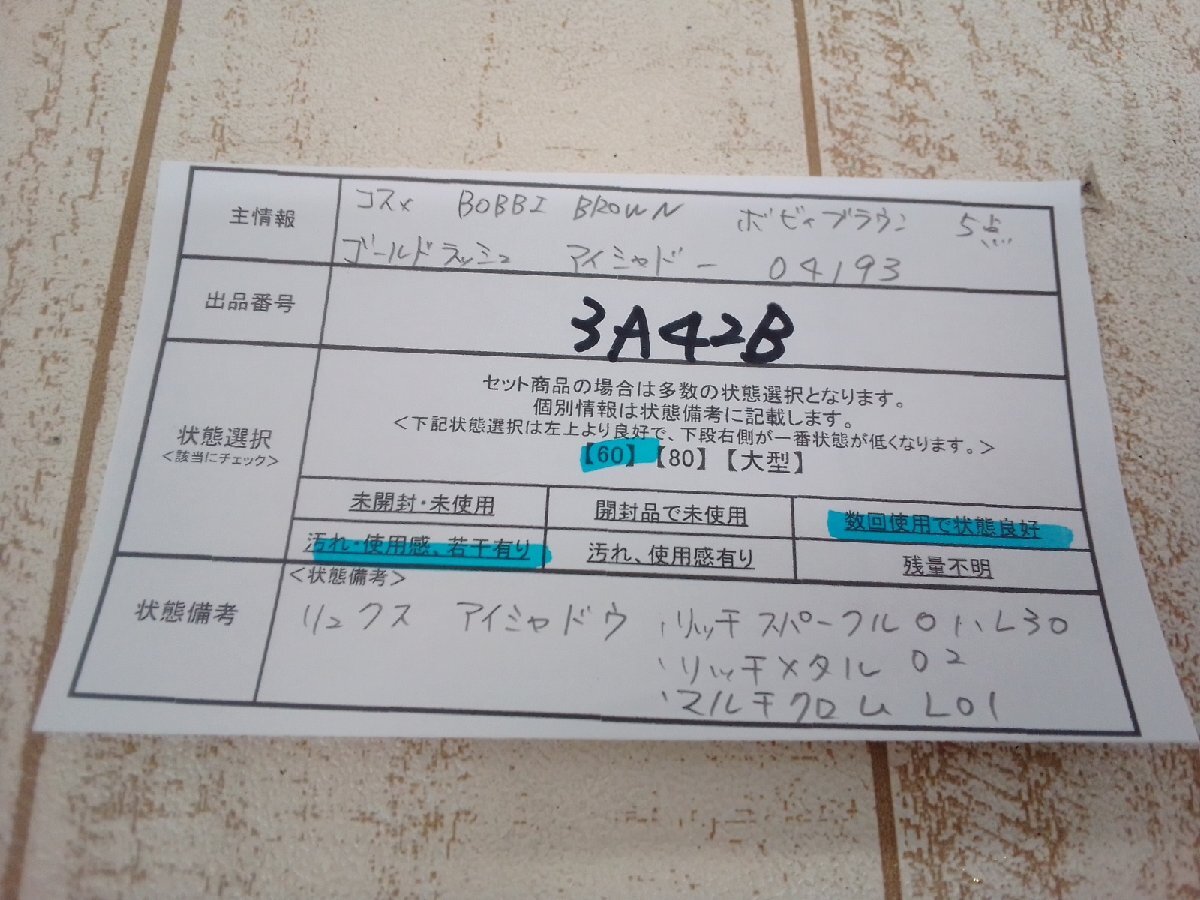 主情報
コスメ BOBBI BROWN ボビィブラウン 5点
ゴールドラッシュ アイシャドー 04193
出品番号
3A42B
状態選択
<該当にチェック>
セット商品の場合は多数の状態選択となります。
個別情報は状態備考に記載します。
<下記状態選択は左上より良好で、下段右側が一番状態が低くなります。>
【60】【80】【大型】
未開封・未使用 開封品で未使用 数回使用で状態良好
汚れ・使用感、若干有り 汚れ、使用感有り 残量不明
状態備考
<状態備考>
リュクス アイシャドウ ・リッチスパークル01、L30
・リッチメタル 02
・マルチクロム L01